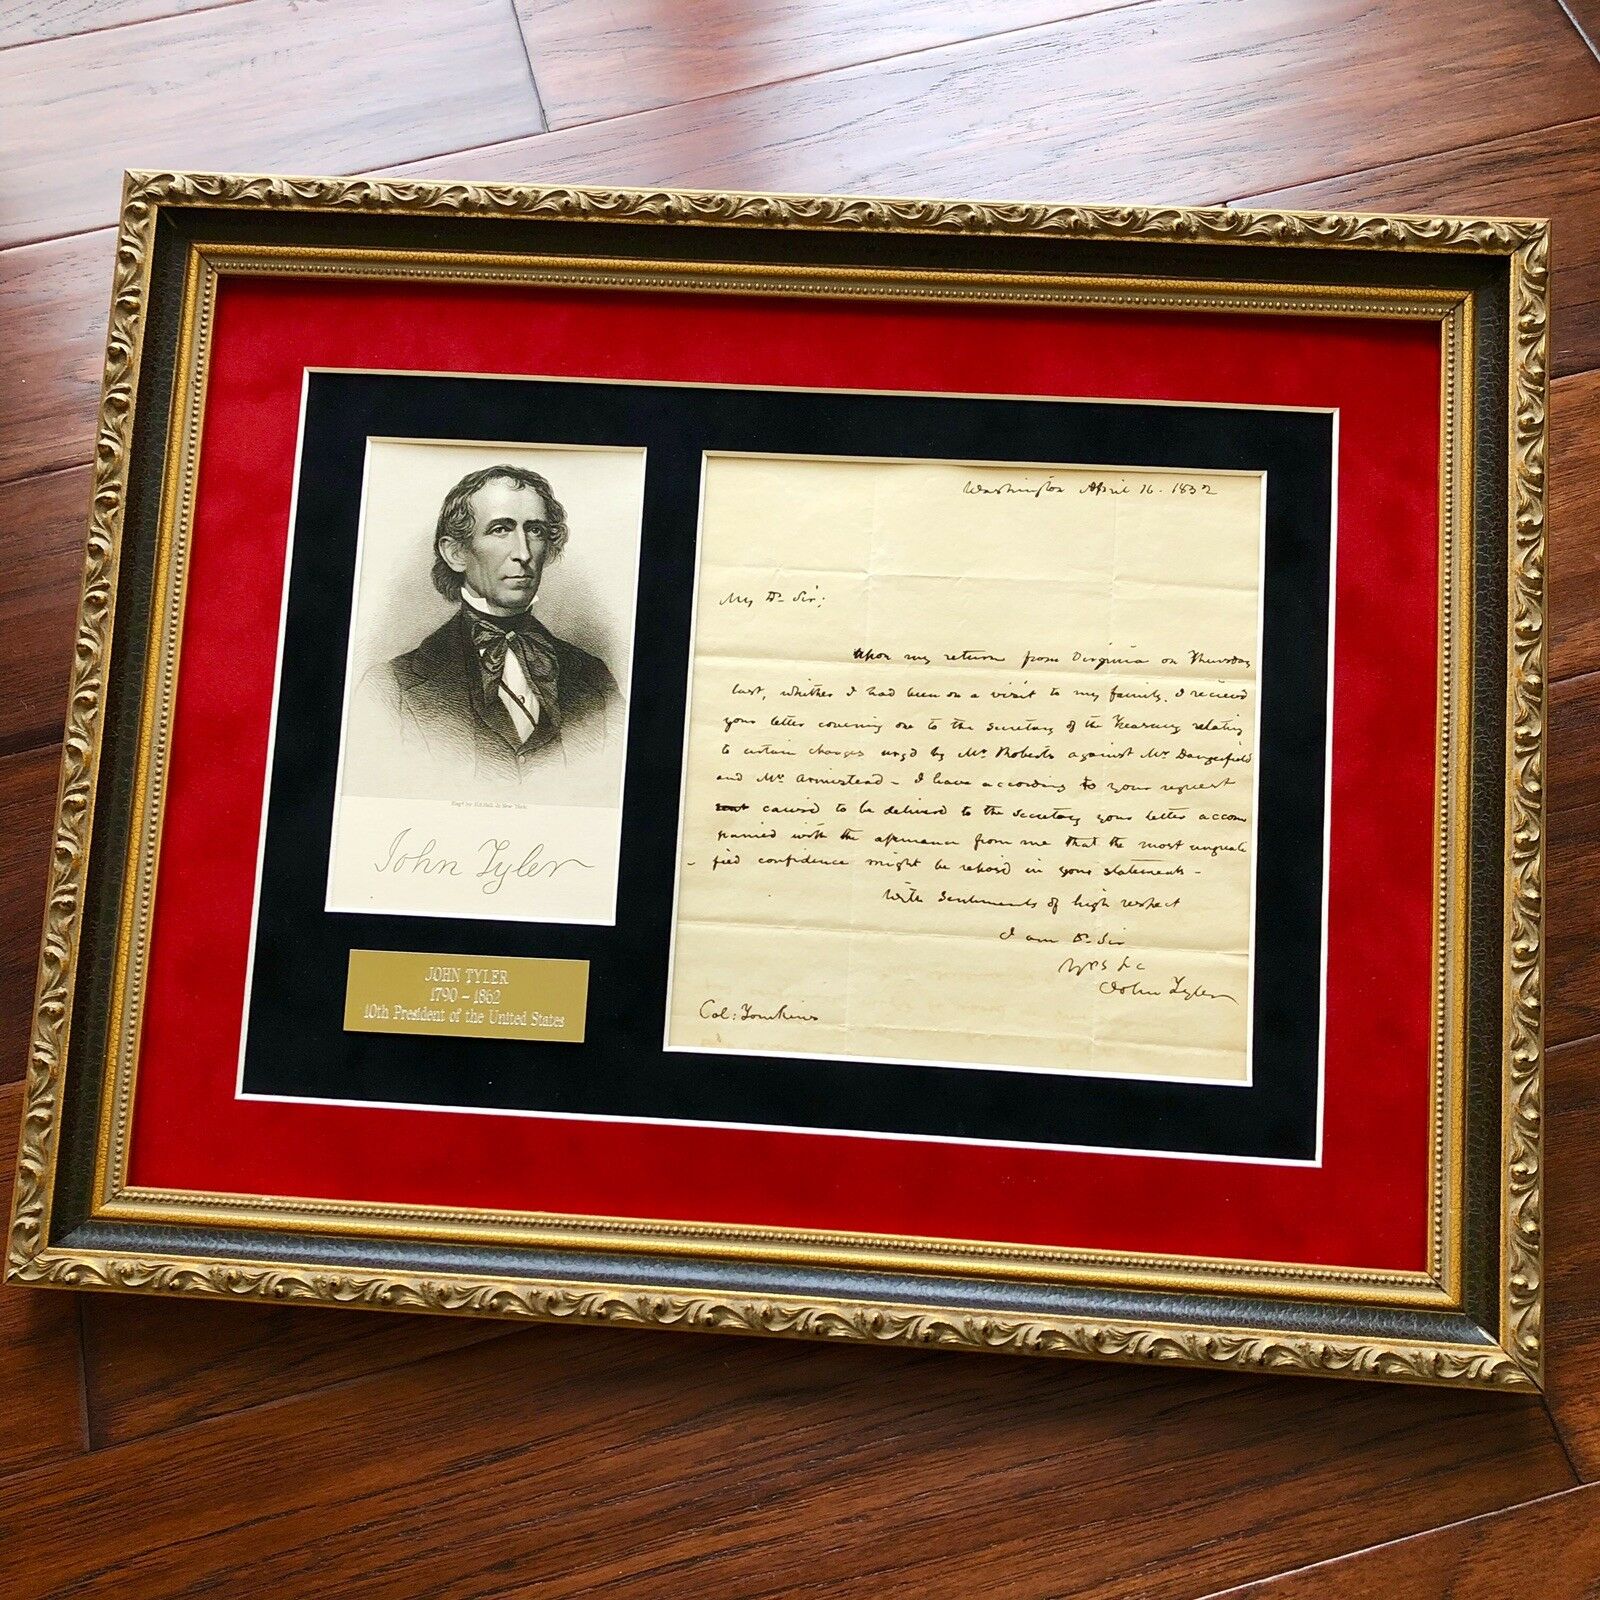 Engd by H.B.Hall, Jr. New York.
John Tyler
JOHN TYLER
1790 – 1862
10th President of the United States
Washington April 16. 1832
My Dr Sir;
Upon my return from Virginia on Thursday
last, whither I had been on a visit to my family, I recieved
your letter covering one to the Secretary of the Treasury relating
to certain charges urg'd by Mr Roberts against Mr Dangerfield
and Mr Armistead - I have according to your request
caused to be deliverd to the Secretary your letter accom
panied with the assurance from me that the most unquali
- fied confidence might be repos'd in your statements -
With sentiments of high respect
I am Dr Sir
Yrs &c
John Tyler
Col: Tomkins